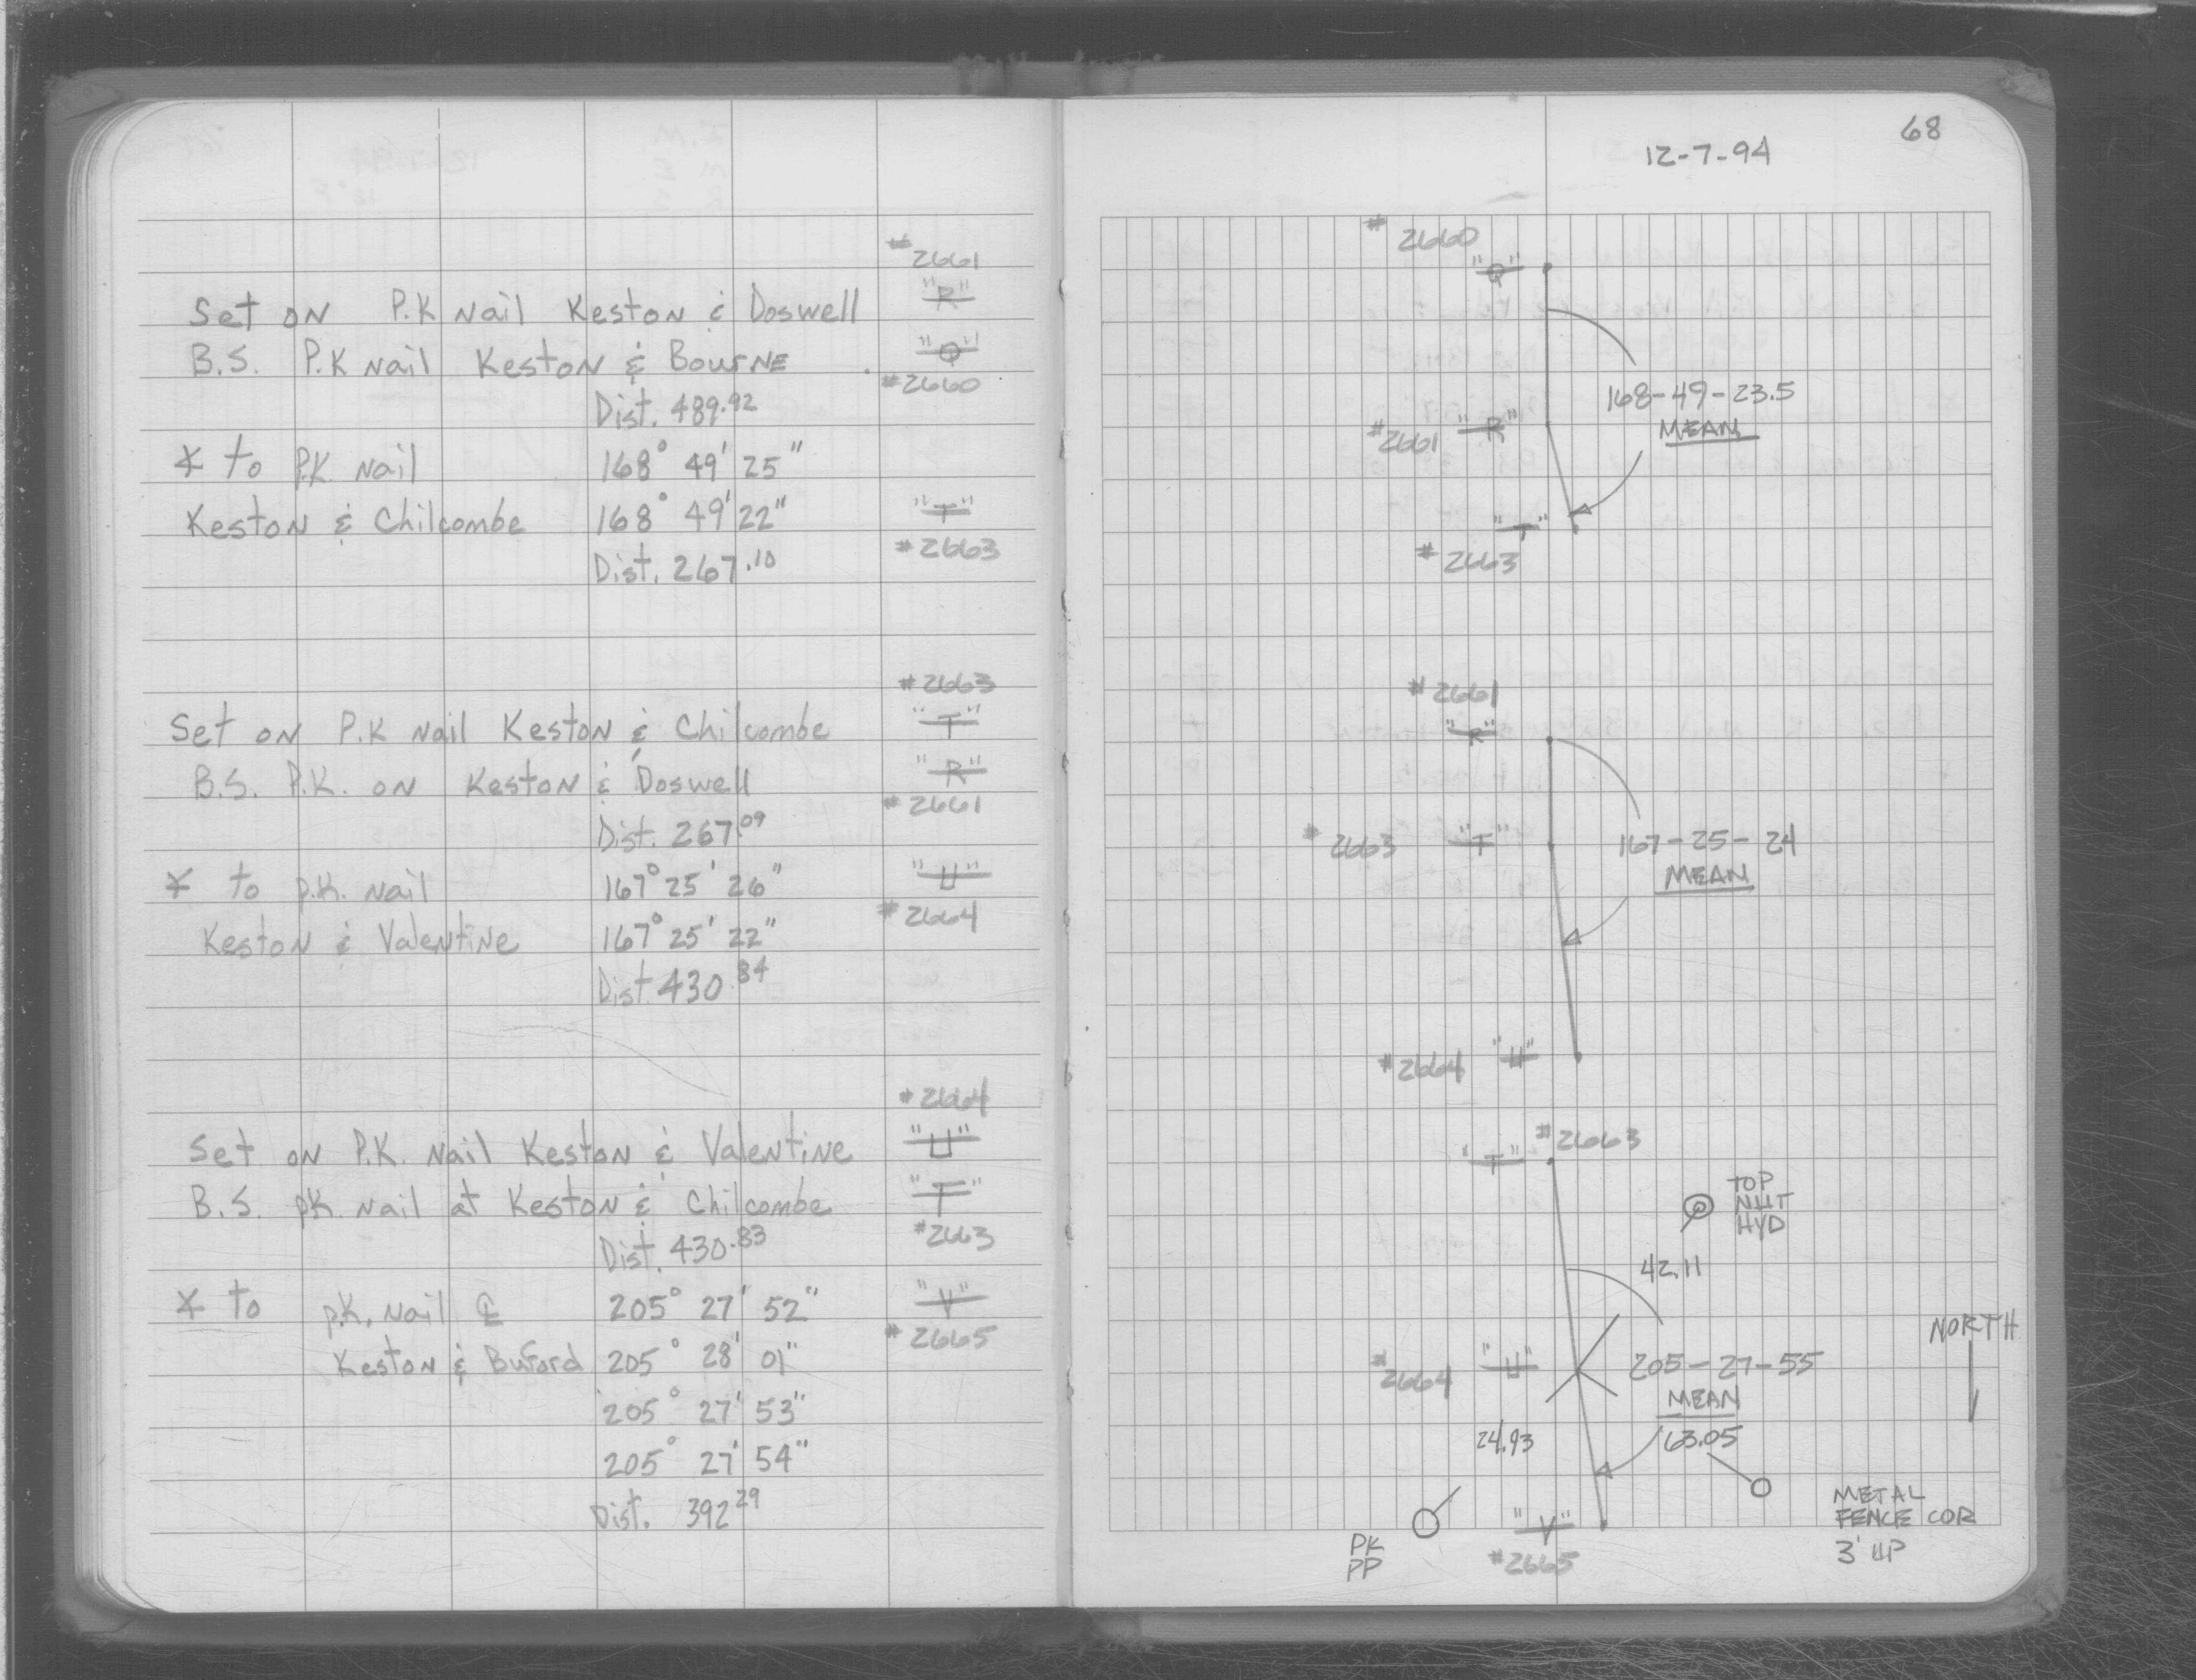 #
2661
Set on P.K Nail Keston & Doswell "R"
B.S. P.K Nail Keston & Bourne "Q"
#2660
Dist. 489.92
∠ to P.K. Nail 168° 49' 25"
Keston & Chilcombe 168° 49' 22" "T"
#2663
Dist. 267.10
#2663
Set on P.K Nail Keston & Chilcombe "T"
B.S. P.K. on Keston & Doswell "R"
#2661
Dist. 267.09
∠ to P.K. Nail 167° 25' 26" "U"
Keston & Valentine 167° 25' 22" #2664
Dist. 430.84
#2664
Set on P.K. Nail Keston & Valentine "U"
B.S. pK. Nail at Keston & Chilcombe "T"
Dist. 430.83 #2663
∠ to p.K. Nail ℄ 205° 27' 52" "V"
Keston & Buford 205° 28' 01" #2665
205° 27' 53"
205° 27' 54"
Dist. 392 29
68
12-7-94
# 2660
"Q"
168-49-23.5
MEAN
#2661 "R"
"T"
#2663
#2661
"R"
#2663 "T"
167-25-24
MEAN
#2664 "U"
"T" #2663
TOP
NUT
HYD
42.11
NORTH
#2664 "U"
205-27-55
MEAN
24.93
63.05
METAL
FENCE COR
3' UP
PK
PP
"V"
#2665